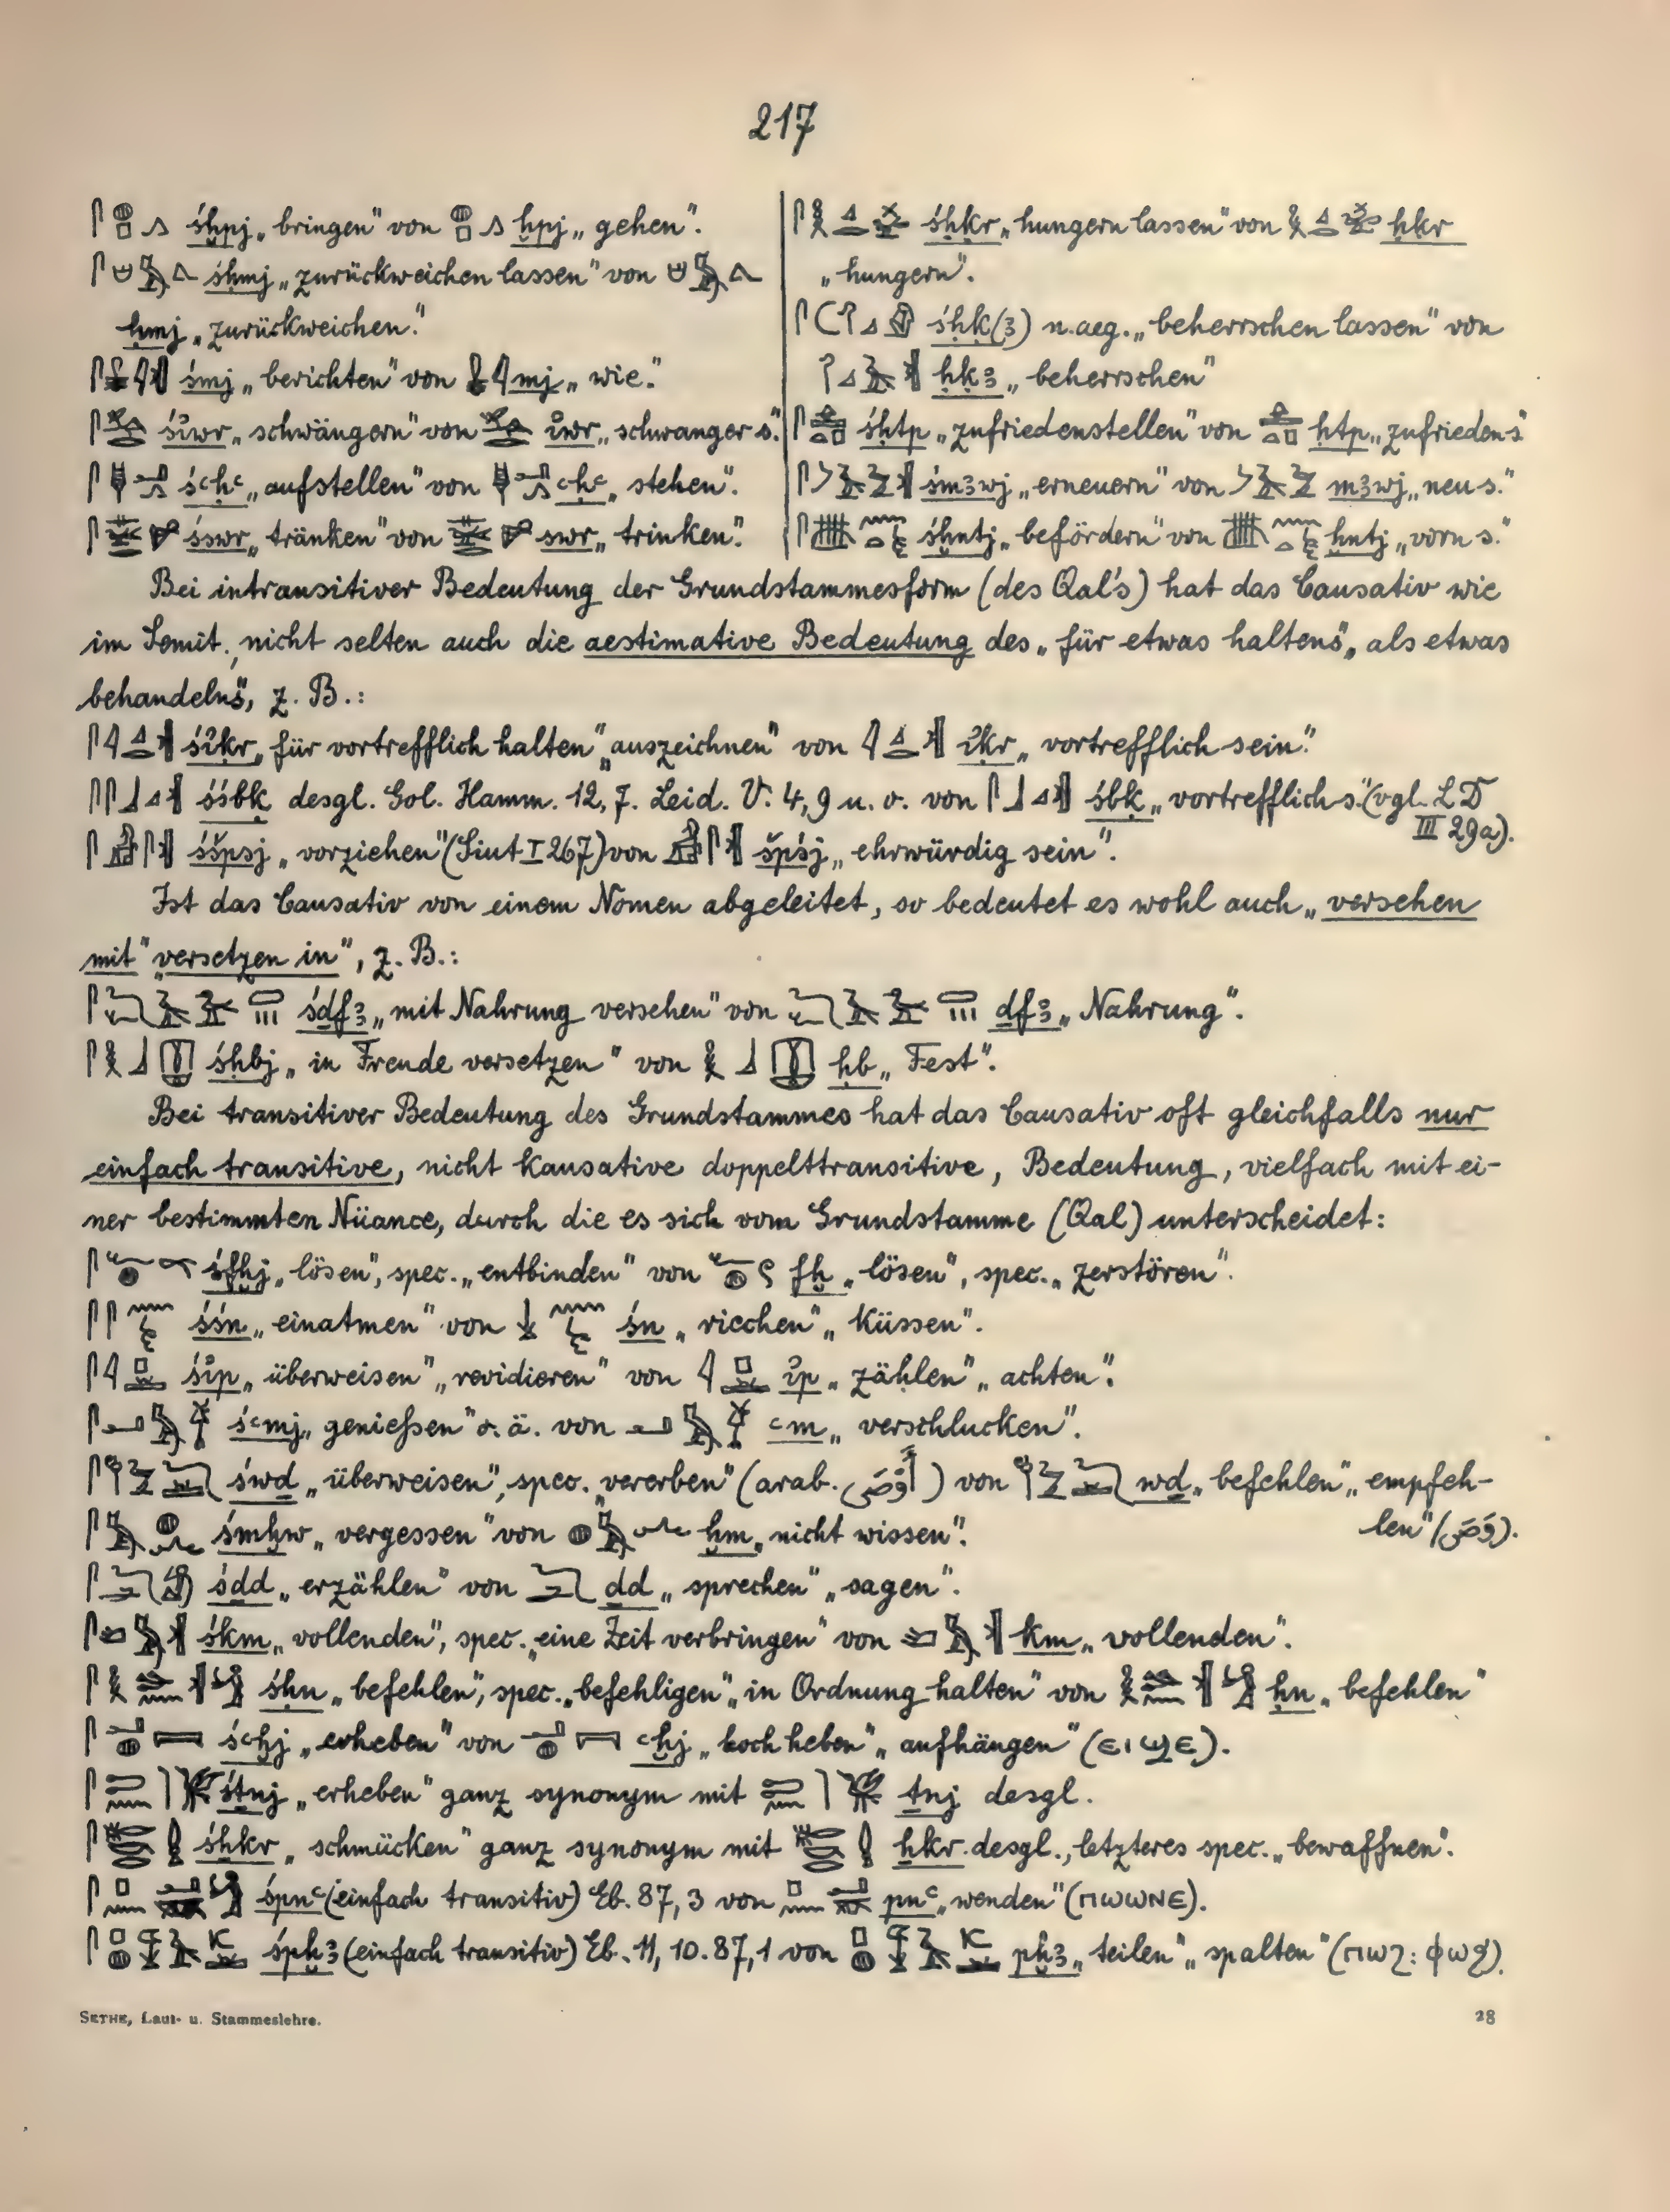 217
śḫpj „bringen" von ḫpj „gehen".
śḥmj „zurückweichen lassen" von
ḥmj „zurückweichen."
śmj „berichten" von mj „wie."
śiwr „schwängern" von iwr „schwanger s."
śꜥḥꜥ „aufstellen" von ꜥḥꜥ „stehen".
śswr „tränken" von swr „trinken".
śḥḳr „hungern lassen" von ḥḳr
„hungern".
śḥḳ(ꜣ) n.aeg. „beherrschen lassen" von
ḥḳꜣ „beherrschen"
śḥtp „zufriedenstellen" von ḥtp „zufrieden s."
śmꜣwj „erneuern" von mꜣwj „neu s."
śḫntj „befördern" von ḫntj „vorn s."
Bei intransitiver Bedeutung der Grundstammesform (des Qal's) hat das Causativ wie
im Semit., nicht selten auch die aestimative Bedeutung des „für etwas haltens", „als etwas
behandelns", z. B.:
śiḳr „für vortrefflich halten" „auszeichnen" von iḳr „vortrefflich sein."
śśbḳ desgl. Gol. Hamm. 12, 7. Leid. V. 4, 9 u. o. von śbḳ „vortrefflich s." (vgl. LD
III 29a).
śšpsj „vorziehen" (Siut I 267) von špśj „ehrwürdig sein".
Ist das Causativ von einem Nomen abgeleitet, so bedeutet es wohl auch „versehen
mit" „versetzen in", z. B.:
śḏfꜣ „mit Nahrung versehen" von ḏfꜣ „Nahrung".
śḥbj „in Freude versetzen" von ḥb „Fest".
Bei transitiver Bedeutung des Grundstammes hat das Causativ oft gleichfalls nur
einfach transitive, nicht kausative doppelttransitive, Bedeutung, vielfach mit ei-
ner bestimmten Nüance, durch die es sich vom Grundstamme (Qal) unterscheidet:
śfḫj „lösen", spec. „entbinden" von fḫ „lösen", spec. „zerstören".
śśn „einatmen" von śn „riechen" „küssen".
śip „überweisen" „revidieren" von ip „zählen" „achten".
śꜥmj „genießen" o. ä. von ꜥm „verschlucken".
śwḏ „überweisen", spec. „vererben" (arab. أَوْصَى) von wḏ „befehlen" „empfeh-
len" (وَصَّى).
śmḫw „vergessen" von ḫm „nicht wissen".
śḏd „erzählen" von ḏd „sprechen" „sagen".
śkm „vollenden", spec. „eine Zeit verbringen" von km „vollenden".
śḥn „befehlen", spec. „befehligen" „in Ordnung halten" von ḥn „befehlen"
śꜥḫj „erheben" von ꜥḫj „hoch heben" „aufhängen" (ⲉⲓϣⲉ).
śṯnj „erheben" ganz synonym mit ṯnj desgl.
śhkr „schmücken" ganz synonym mit hkr desgl., letzteres spec. „bewaffnen".
śpnꜥ (einfach transitiv) Eb. 87, 3 von pnꜥ „wenden" (ⲡⲱⲱⲛⲉ).
śpḫꜣ (einfach transitiv) Eb. 11, 10. 87, 1 von pḫꜣ „teilen" „spalten" (ⲡⲱϩ: ⲫⲱϧ).
SETHE, Laut- u. Stammeslehre. 28